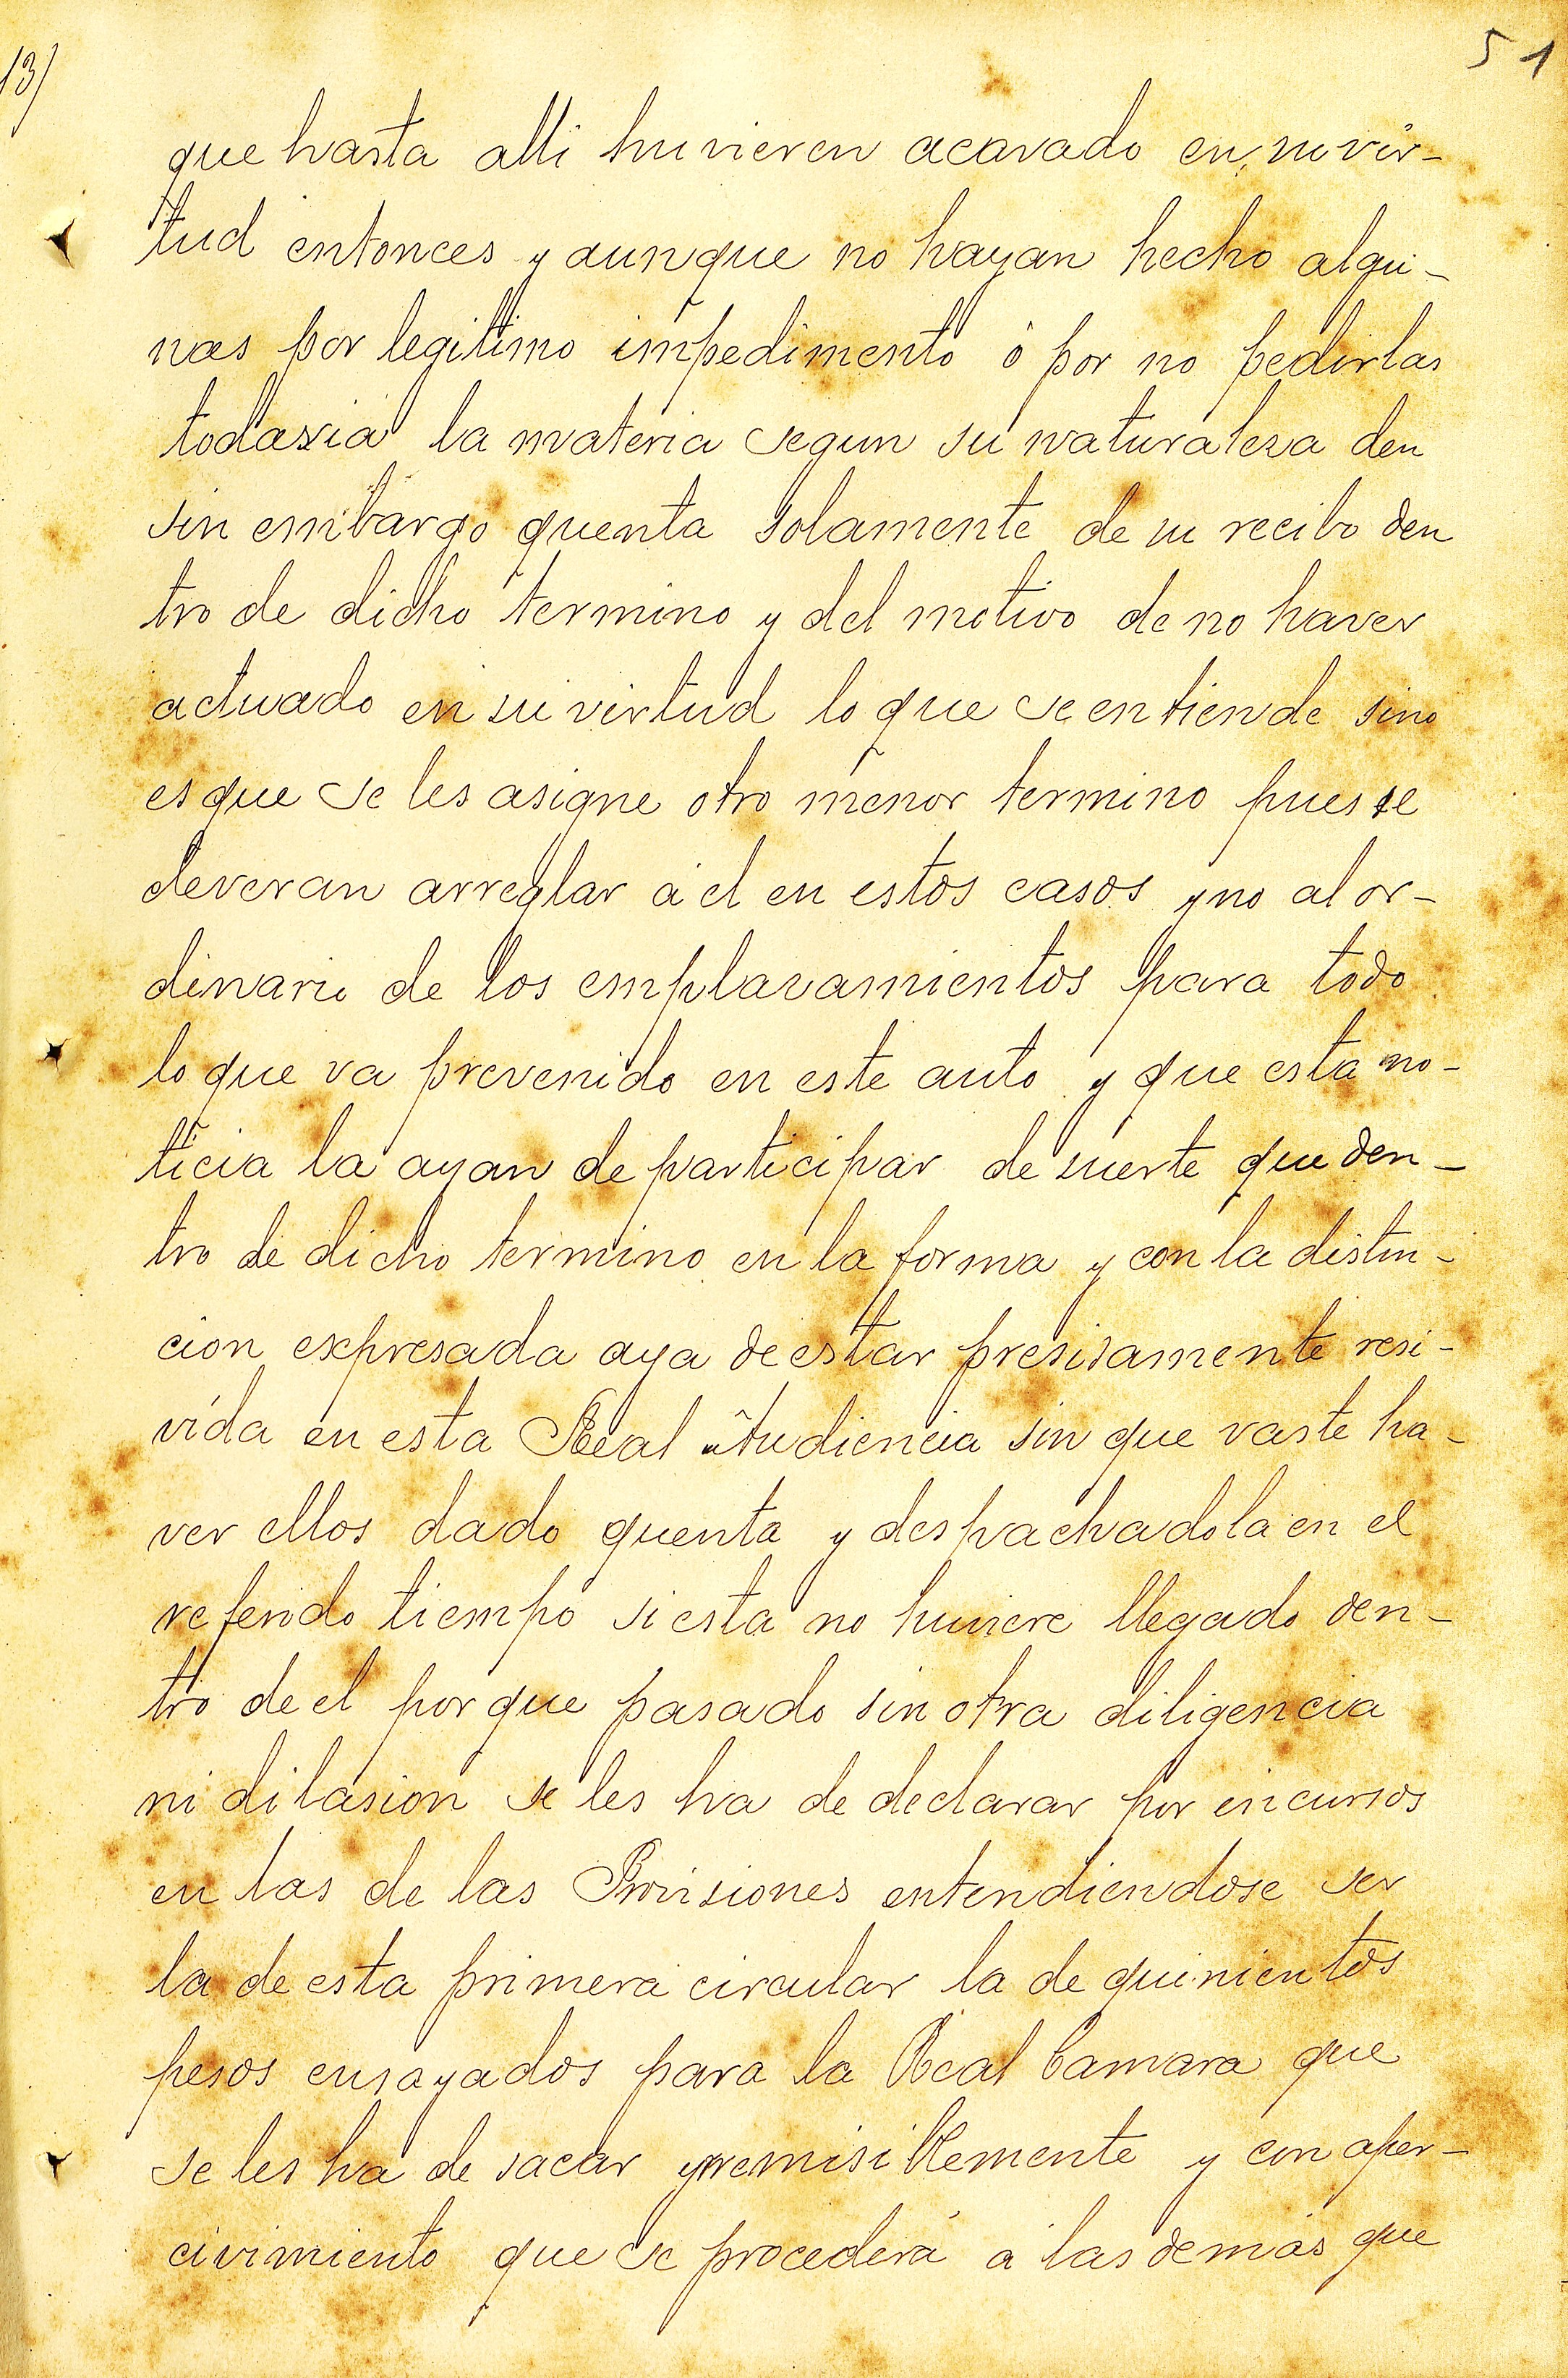 13)
51
que hasta alli huvieren acavado en su vir-
tud entonces y aunque no hayan hecho algu-
nas por legitimo impedimento ó por no pedirlas
todavia la materia segun su naturalesa den
sin embargo quenta solamente de su recibo den
tro de dicho termino y del motivo de no haver
actuado en su virtud lo que se entiende sino
es que se les asigne otro menor termino pues se
deveran arreglar á el en estos casos y no al or-
dinario de los emplazamientos para todo
lo que va prevenido en este auto y que esta no-
ticia la ayan de participar de suerte que den-
tro de dicho termino en la forma y con la distin-
cion expresada aya de estar presisamente resi-
vida en esta Real Audiencia sin que vaste ha-
ver ellos dado quenta y despachadola en el
referido tiempo si esta no huviere llegado den-
tro de el porque pasado sin otra diligencia
ni dilasion se les ha de declarar por incursos
en las de las Provisiones entendiendose ser
la de esta primera circular la de quinientos
pesos ensayados para la Real Camara que
se les ha de sacar yrremisiblemente y con aper-
civimiento que se procederá á las demás que